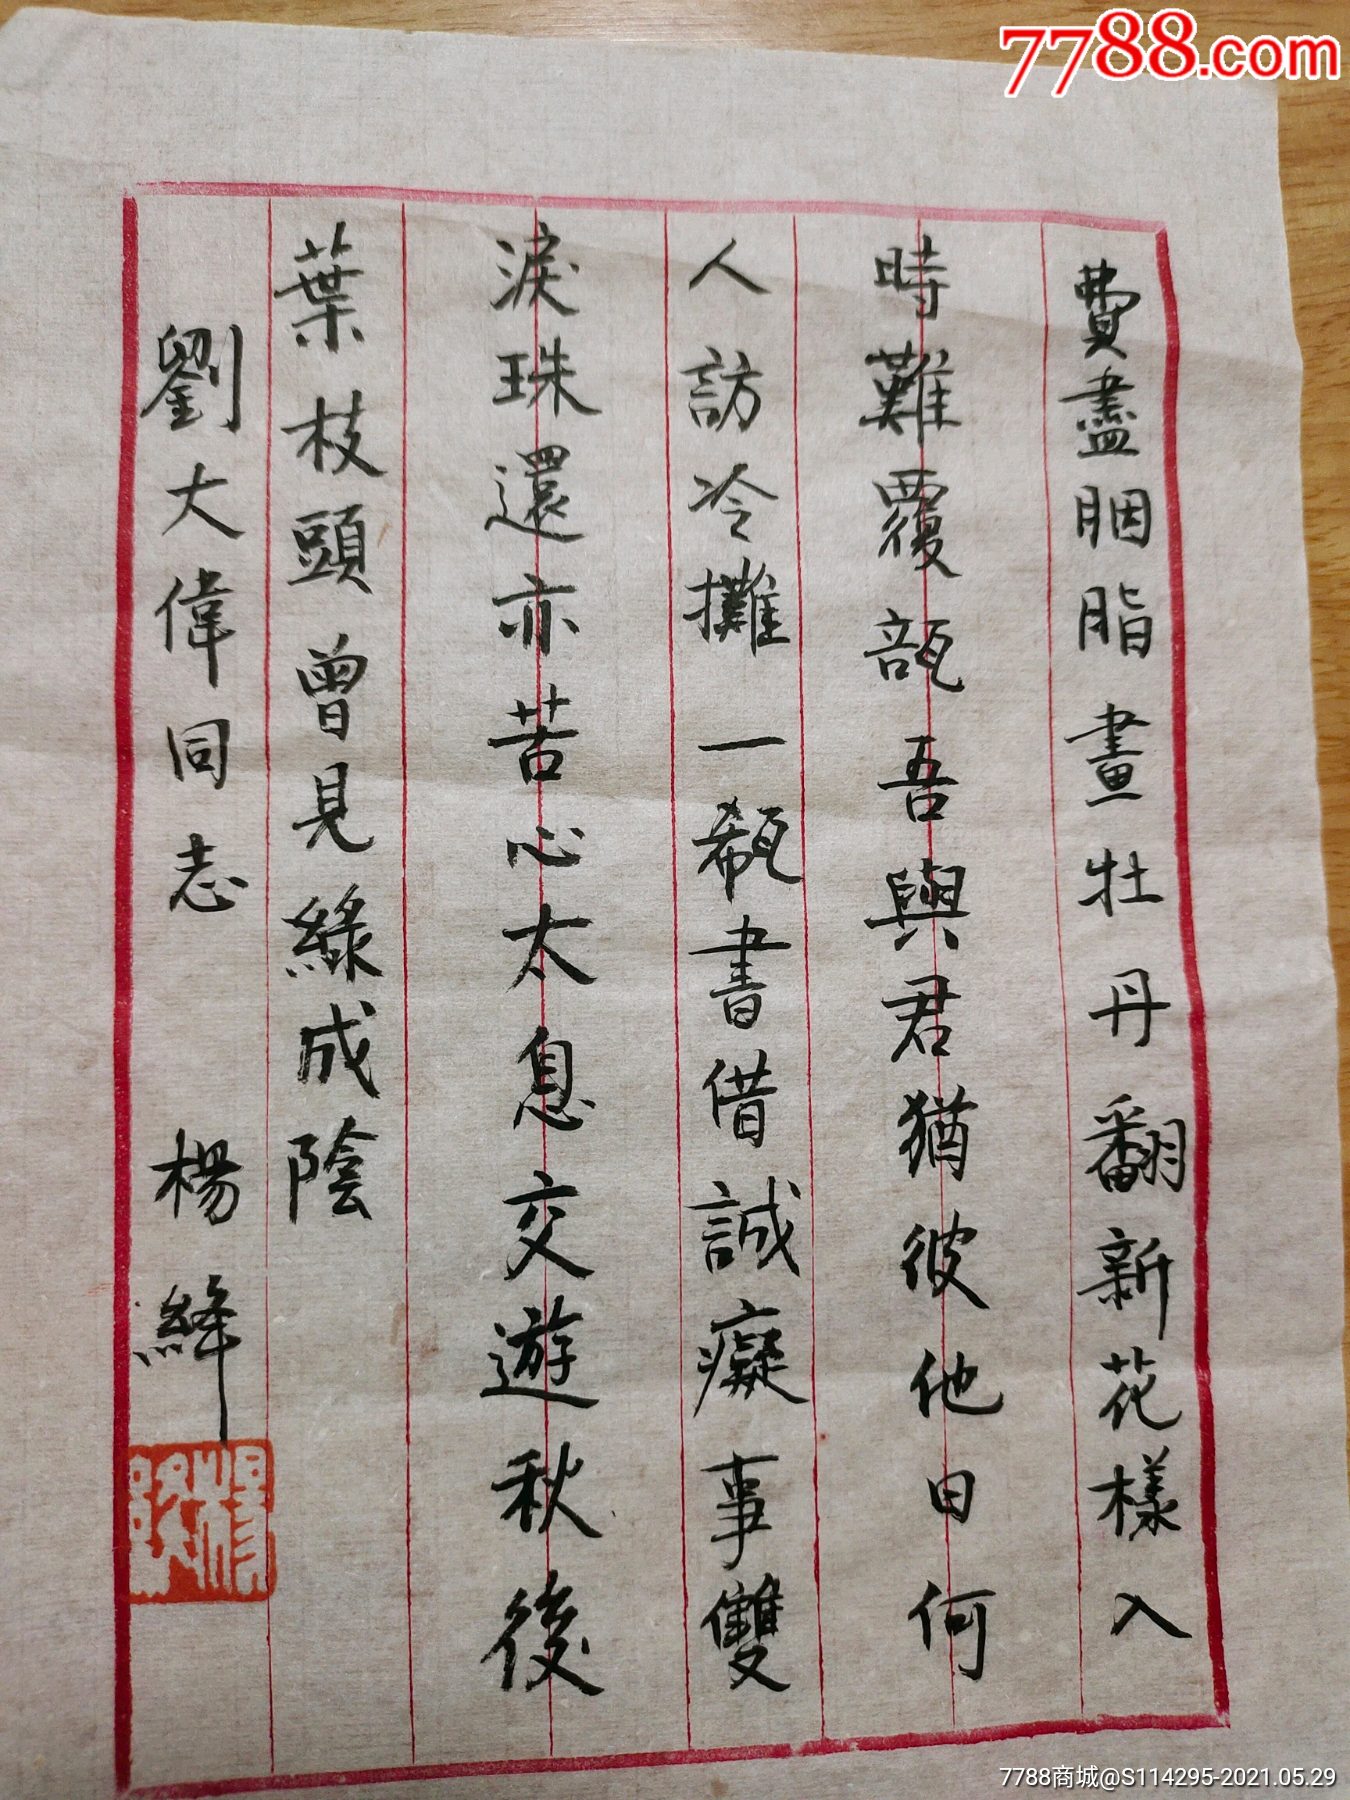 7788.com
費盡胭脂畫牡丹翻新花樣入
時難覆瓿吾與君猶彼他日何
人訪冷攤一瓻書借誠癡事雙
淚珠還亦苦心太息交遊秋後
葉枝頭曾見綠成陰
劉大偉同志 楊絳
7788商城@S114295-2021.05.29